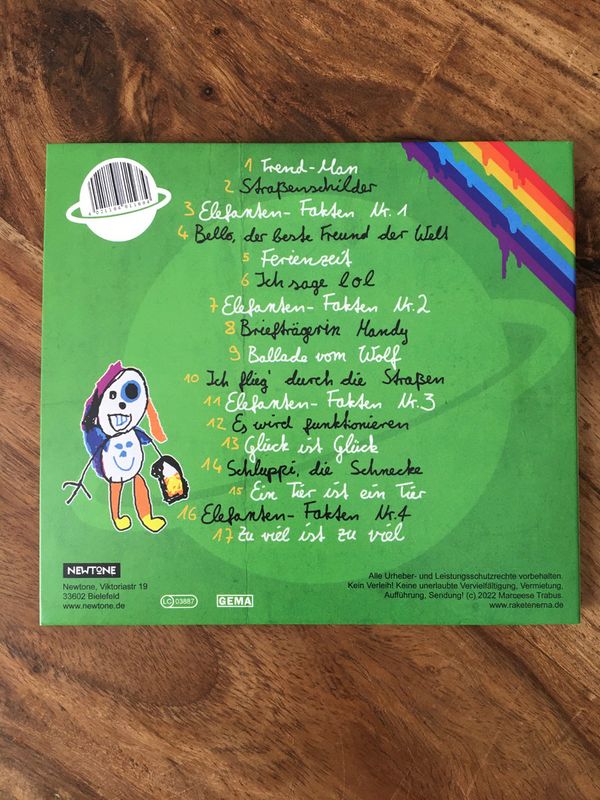 1 Trend-Man
2 Straßenschilder
3 Elefanten-Fakten Nr. 1
4 Bello, der beste Freund der Welt
5 Ferienzeit
6 Ich sage lol
7 Elefanten-Fakten Nr. 2
8 Briefträgerin Mandy
9 Ballade vom Wolf
10 Ich flieg' durch die Straßen
11 Elefanten-Fakten Nr. 3
12 Es wird funktionieren
13 Glück ist Glück
14 Schluppi, die Schnecke
15 Ein Tier ist ein Tier
16 Elefanten-Fakten Nr. 4
17 Zu viel ist zu viel
NEWTONE
Newtone, Viktoriastr 19
33602 Bielefeld
www.newtone.de
LC 03887
GEMA
Alle Urheber- und Leistungsschutzrechte vorbehalten.
Kein Verleih! Keine unerlaubte Vervielfältigung, Vermietung,
Aufführung, Sendung! (c) 2022 Marceese Trabus.
www.raketenerna.de